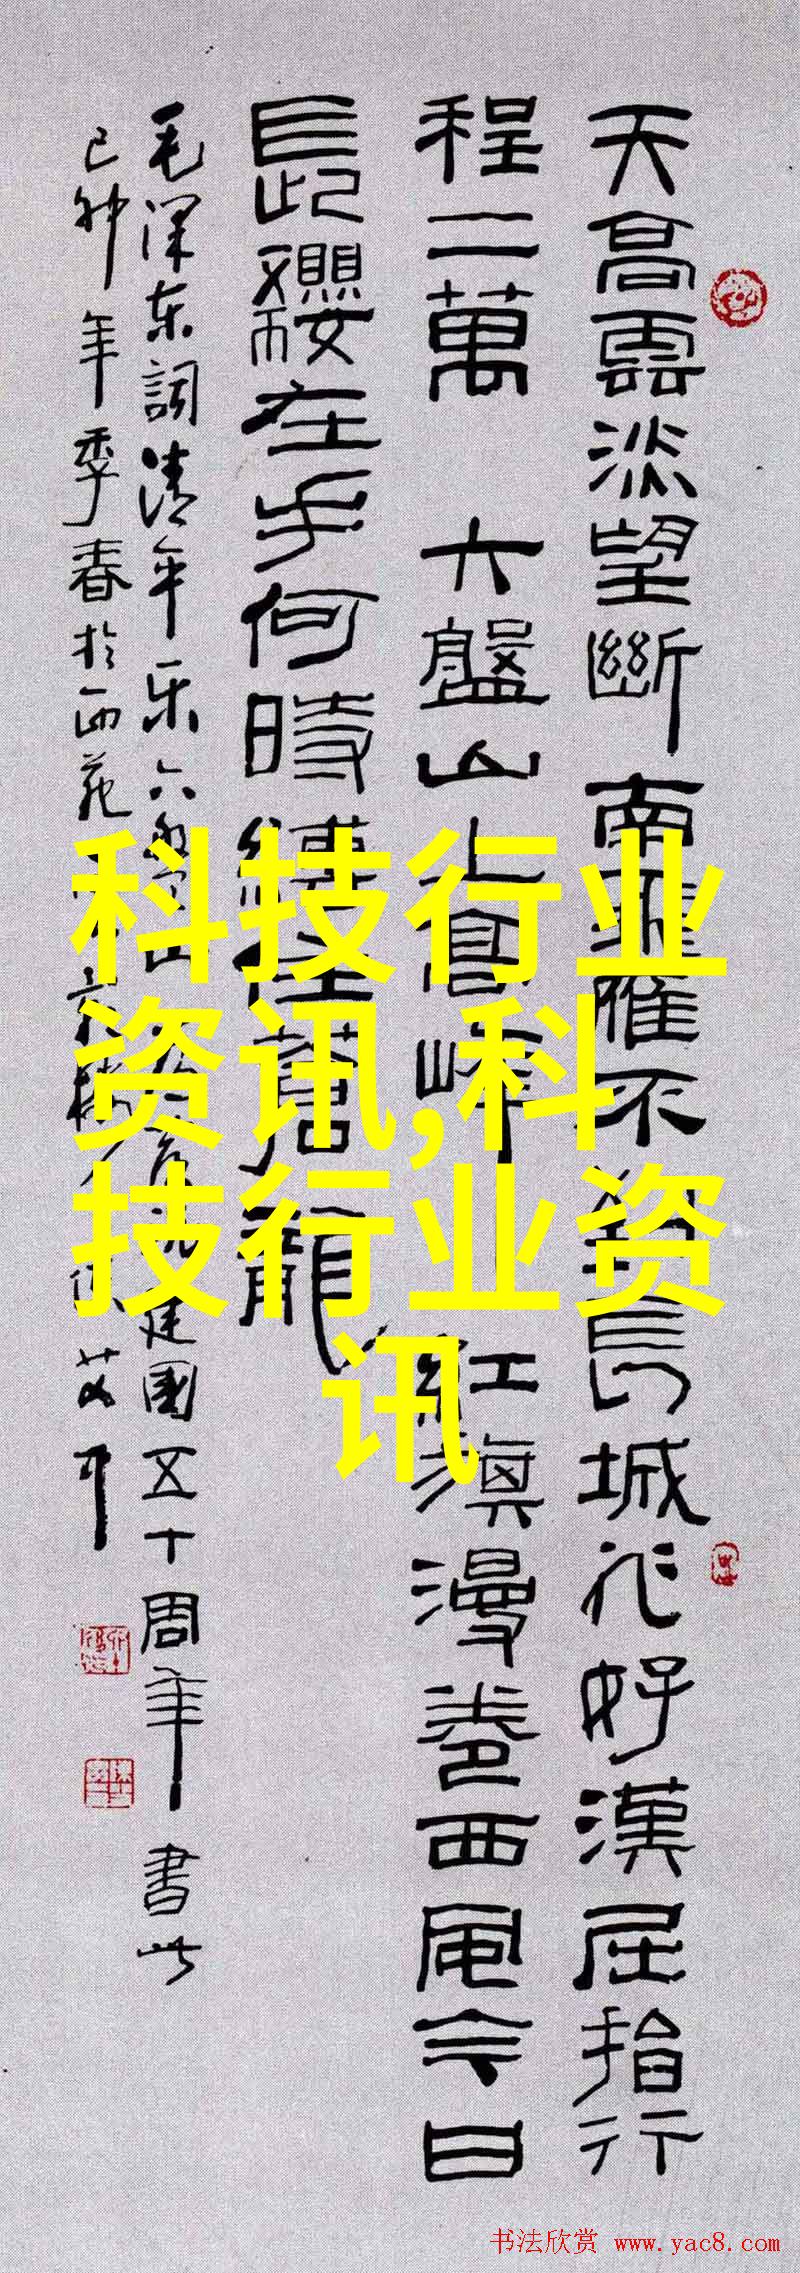 天高雲淡望斷南飛雁不到長城非好漢屈指行
程二萬 六盤山上高峰 紅旗漫卷西風今日
長纓在手何時縛住蒼龍
毛澤东詞清平乐六盘山 建國五十周年書此
己卯年季春於西苑
科技行业
资讯,科
技行业资
讯
书法欣赏 www.yac8.com